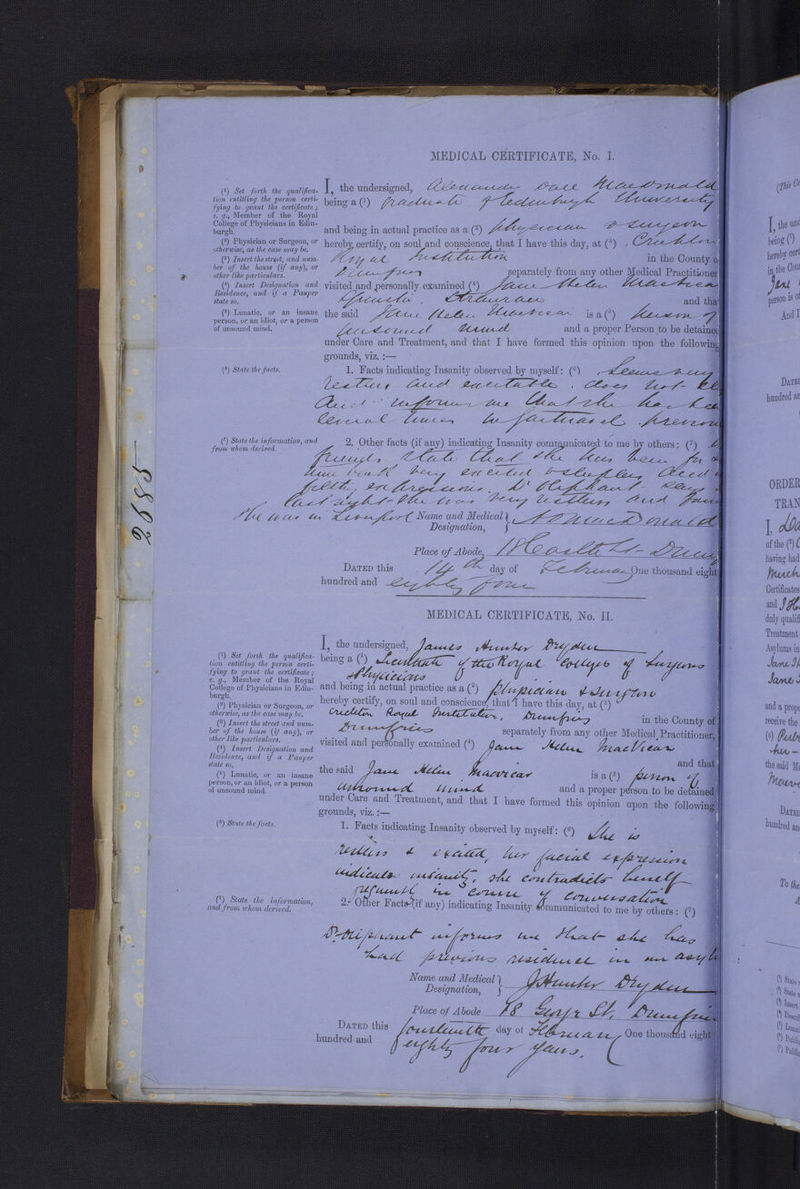 MEDICAL CERTIFICATE, No. I.
(¹) Set forth the qualifica-
tion entitling the person certi-
fying to grant the certificate;
e. g., Member of the Royal
College of Physicians in Edin-
burgh.
(²) Physician or Surgeon, or
otherwise, as the case may be.
(³) Insert the street, and num-
ber of the house (if any), or
other like particulars.
(⁴) Insert Designation and
Residence, and if a Pauper
state so.
(⁵) Lunatic, or an insane
person, or an idiot, or a person
of unsound mind.
(⁶) State the facts.
(⁷) State the information, and
from whom derived.
2685
I, the undersigned, Alexander Dall MacDonald
being a (¹) Graduate of Edinburgh University
and being in actual practice as a (²) Physician & surgeon
hereby certify, on soul and conscience, that I have this day, at (³) Crichton
Royal Institution in the County o
Dumfries separately from any other Medical Practitioner
visited and personally examined (⁴) Jane Helen
and tha
the said Jane Helen is a (⁵) person of
unsound mind and a proper Person to be detaine
under Care and Treatment, and that I have formed this opinion upon the following
grounds, viz. :—
1. Facts indicating Insanity observed by myself: (⁶) Seems very
restless and excitable. does not
informs me that she has
several times
2. Other facts (if any) indicating Insanity communicated to me by others: (⁷)
friends state that she has been for
time back very excited & sleepless
Dr Oliphant says
last night she was very restless and
She was in
Name and Medical Designation, A D MacDonald
Place of Abode, Castle St Dum
DATED this 14th day of February One thousand eight
hundred and eighty four
MEDICAL CERTIFICATE, No. II.
(¹) Set forth the qualifica-
tion entitling the person certi-
fying to grant the certificate;
e. g., Member of the Royal
College of Physicians in Edin-
burgh.
(²) Physician or Surgeon, or
otherwise, as the case may be.
(³) Insert the street and num-
ber of the house (if any), or
other like particulars.
(⁴) Insert Designation and
Residence, and if a Pauper
state so.
(⁵) Lunatic, or an insane
person, or an idiot, or a person
of unsound mind.
(⁶) State the facts.
(⁷) State the information,
and from whom derived.
I, the undersigned, James Hunter Dryden
being a (¹) Licentiate of the Royal Colleges of Surgeons
& Physicians
and being in actual practice as a (²) physician & surgeon
hereby certify, on soul and conscience, that I have this day, at (³)
Crichton Royal Institution, Dumfries in the County of
Dumfries separately from any other Medical Practitioner,
visited and personally examined (⁴) Jane Helen MacVicar
and that
the said Jane Helen Macvicar is a (⁵) person of
unsound mind and a proper person to be detained
under Care and Treatment, and that I have formed this opinion upon the following
grounds, viz. :—
1. Facts indicating Insanity observed by myself: (⁶) She is
restless & excited, her facial expression
indicates insanity, she contradicts herself
frequently in course of conversation
2. Other Facts (if any) indicating Insanity communicated to me by others: (⁷)
Dr Oliphant informs me that she has
had previous residence in an asyl
Name and Medical Designation, J Hunter Dryden
Place of Abode 18 George St, Dumfries
DATED this fourteenth day of February One thousand eight
hundred and eighty four years.
(This Ce
I, the und
being (¹)
hereby cert
in the Coun
Jane
person is of
And I
DATED
hundred an
ORDER
TRAN
of the (²)
having had
Certificates
and
duly qualifi
Treatment
Asylums in
Jane
Jane
and a prope
receive the
her
the said
DATED
hundred an
To the